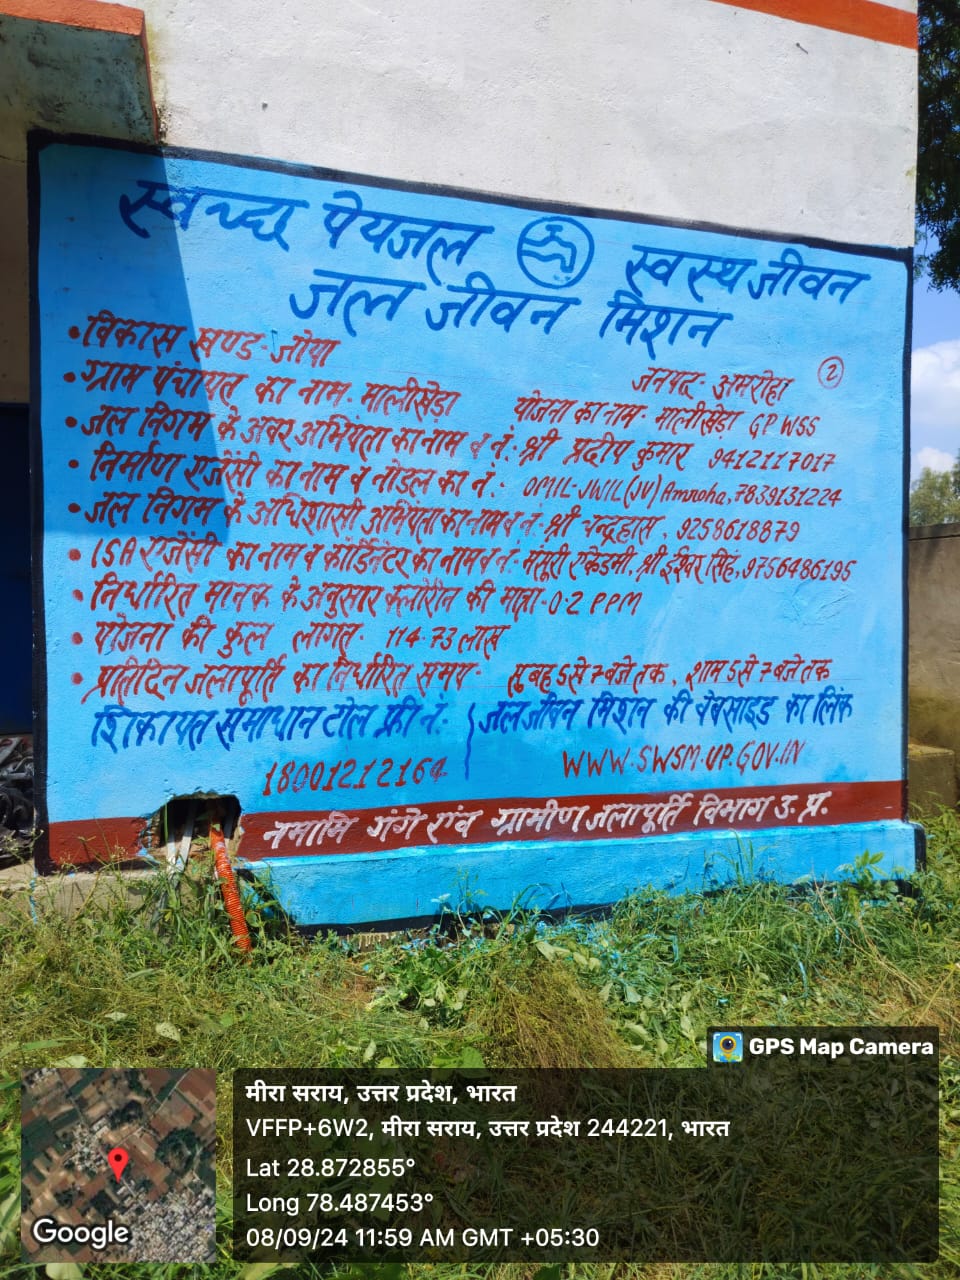 स्वच्छ पेयजल स्वस्थ जीवन
जल जीवन मिशन
•विकास खण्ड-जोया
जनपद- अमरोहा 2
•ग्राम पंचायत का नाम- मालीखेड़ा योजना का नाम- मालीखेड़ा GPWSS
•जल निगम के अवर अभियंता का नाम व नं.- श्री प्रदीप कुमार 9412117017
•निर्माण एजेंसी का नाम व नोडल का नं: OMIL-JWIL(JV)Amroha,7839131224
•जल निगम के अधिशासी अभियंता का नाम व नं- श्री चन्द्रहास, 9258618879
•ISA एजेंसी का नाम व कॉर्डिनेटर का नाम व नं.- मंसूरी एकेडमी, श्री ईश्वर सिंह,9756486195
•निर्धारित मानक के अनुसार क्लोरीन की मात्रा-0.2 PPM
•योजना की कुल लागत- 114.73 लाख
•प्रतिदिन जलापूर्ति का निर्धारित समय- सुबह 5 से 7 बजे तक, शाम 5 से 7 बजे तक
शिकायत समाधान टोल फ्री नं:
18001212164
जल जीवन मिशन की वेबसाइड का लिंक
WWW.SWSM.UP.GOV.IN
नमामि गंगे एंव ग्रामीण जलापूर्ति विभाग उ.प्र.
GPS Map Camera
मीरा सराय, उत्तर प्रदेश, भारत
VFFP+6W2, मीरा सराय, उत्तर प्रदेश 244221, भारत
Lat 28.872855°
Long 78.487453°
08/09/24 11:59 AM GMT +05:30
Google